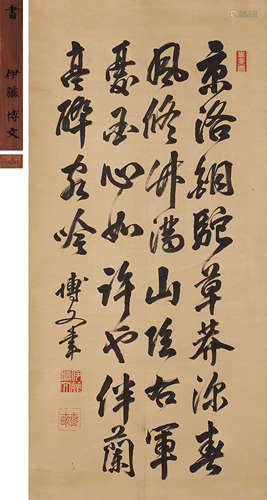 京洛銅駝草莽深春
風修禊滿山陰右軍
憂國心如許也伴蘭
亭醉客吟
博文
書 伊藤博文